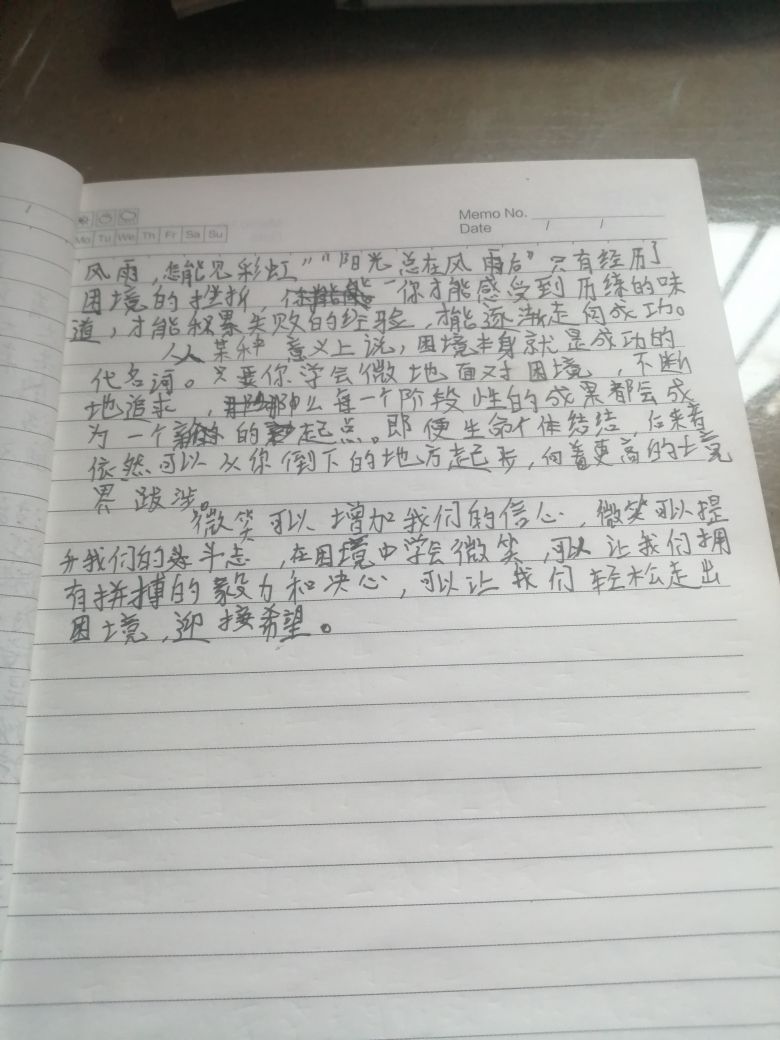 Memo No.
Date / /
Mo Tu We Th Fr Sa Su
风雨，怎能见彩虹”“阳光总在风雨后”只有经历了
困境的挫折，你才能感受到历练的味
道，才能积累失败的经验，才能逐渐走向成功。
从某种意义上说，困境本身就是成功的
代名词。只要你学会微地面对困境，不断
地追求，那么每一个阶段性的成果都会成
为一个新的起点。即便生命个体结结，后来者
依然可以从你倒下的地方起步，向着更高的境
界跋涉。
微笑可以增加我们的信心，微笑可以提
升我们的斗志，在困境中学会微笑，可以让我们拥
有拼搏的毅力和决心，可以让我们轻松走出
困境，迎接希望。